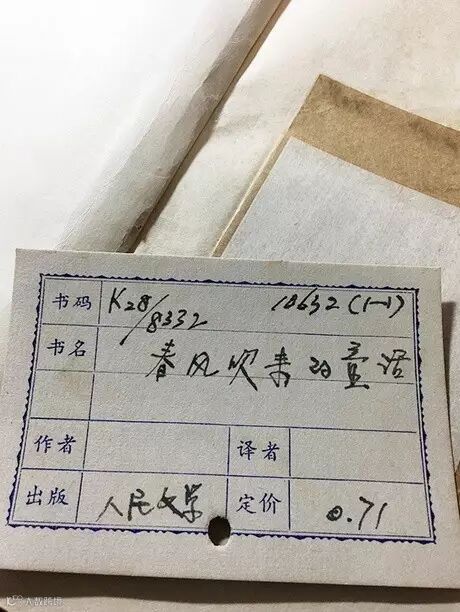 书码 K28/8332 18632(1-1)
书名 春风吹来的童话
作者 译者
出版 人民文学 定价 0.71
大数跨境